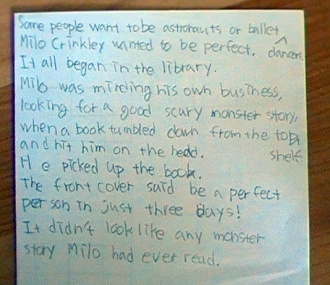 Some people want to be astronauts or ballet dancers.
Milo Crinkley wanted to be perfect.
It all began in the library.
Milo was minding his own business,
looking for a good scary monster story,
when a book tumbled down from the top shelf
and hit him on the head.
He picked up the book.
The front cover said be a perfect
person in just three days!
It didn't look like any monster
story Milo had ever read.